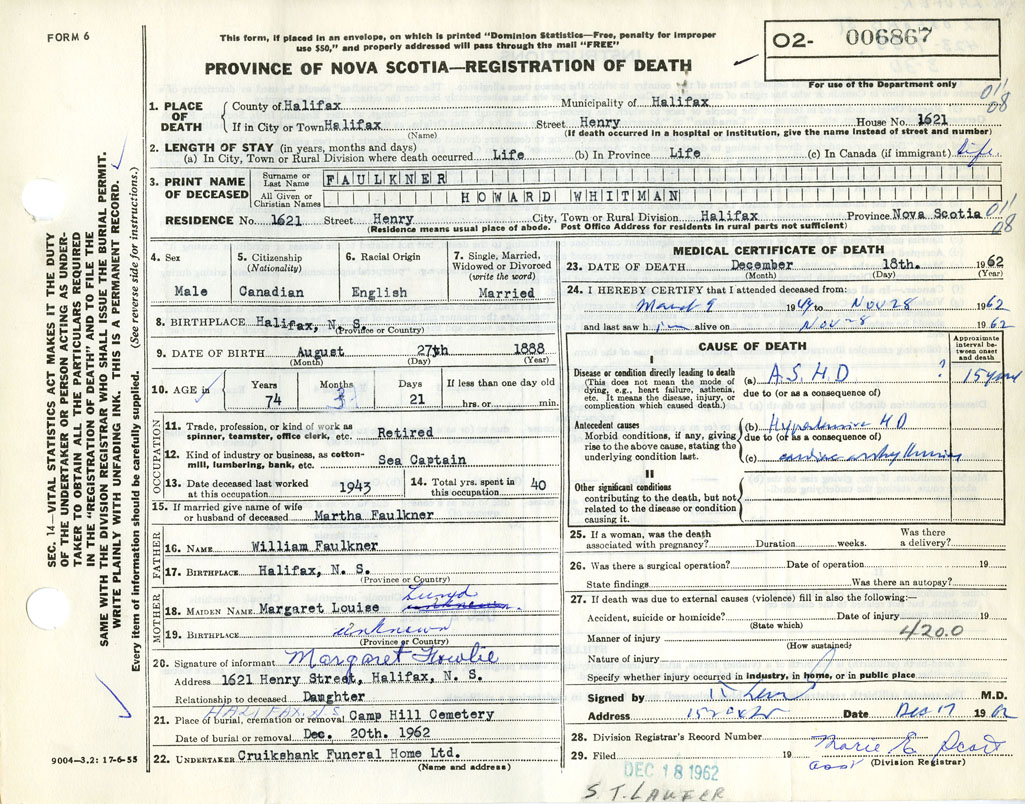 FORM 6
This form, if placed in an envelope, on which is printed "Dominion Statistics—Free, penalty for improper
use $50," and properly addressed will pass through the mail "FREE"
PROVINCE OF NOVA SCOTIA—REGISTRATION OF DEATH
O2- 006867
For use of the Department only
1. PLACE OF DEATH
County of Halifax Municipality of Halifax
If in City or Town Halifax Street Henry House No. 1621
(Name) (If death occurred in a hospital or institution, give the name instead of street and number)
2. LENGTH OF STAY (in years, months and days)
(a) In City, Town or Rural Division where death occurred Life (b) In Province Life (c) In Canada (if immigrant) Life
3. PRINT NAME OF DECEASED
Surname or Last Name FAULKNER
All Given or Christian Names HOWARD WHITMAN
RESIDENCE No. 1621 Street Henry City, Town or Rural Division Halifax Province Nova Scotia
(Residence means usual place of abode. Post Office Address for residents in rural parts not sufficient)
011
08
011
08
4. Sex
Male
5. Citizenship
(Nationality)
Canadian
6. Racial Origin
English
7. Single, Married,
Widowed or Divorced
(write the word)
Married
8. BIRTHPLACE Halifax, N. S.
(Province or Country)
9. DATE OF BIRTH August 27th 1888
(Month) (Day) (Year)
10. AGE in
Years Months Days If less than one day old
74 3 21 hrs. or min.
OCCUPATION
11. Trade, profession, or kind of work as
spinner, teamster, office clerk, etc. Retired
12. Kind of industry or business, as cotton-
mill, lumbering, bank, etc. Sea Captain
13. Date deceased last worked
at this occupation 1943
14. Total yrs. spent in
this occupation 40
15. If married give name of wife
or husband of deceased Martha Faulkner
FATHER
16. NAME William Faulkner
17. BIRTHPLACE Halifax, N. S.
(Province or Country)
MOTHER
18. MAIDEN NAME Margaret Louise unknown.
19. BIRTHPLACE unknown
(Province or Country)
20. Signature of informant Margaret Howlie
Address 1621 Henry Street, Halifax, N. S.
Relationship to deceased Daughter
HALIFAX, N.S.
21. Place of burial, cremation or removal Camp Hill Cemetery
Date of burial or removal Dec. 20th. 1962
22. UNDERTAKER Cruikshank Funeral Home Ltd.
(Name and address)
9004—3.2: 17-6-55
MEDICAL CERTIFICATE OF DEATH
23. DATE OF DEATH December 18th. 1962
(Month) (Day) (Year)
24. I HEREBY CERTIFY that I attended deceased from:
March 9 1949 to Nov 28 1962
and last saw him alive on Nov 28 1962
CAUSE OF DEATH
Approximate
interval be-
tween onset
and death
I
Disease or condition directly leading to death
(This does not mean the mode of
dying, e.g., heart failure, asthenia,
etc. It means the disease, injury, or
complication which caused death.)
(a) A.S.H.D ? 15 years
due to (or as a consequence of)
Antecedent causes
Morbid conditions, if any, giving
rise to the above cause, stating the
underlying condition last.
(b) Hypertensive H D
due to (or as a consequence of)
(c) cardiac arrhythmias
II
Other significant conditions
contributing to the death, but not
related to the disease or condition
causing it.
25. If a woman, was the death
associated with pregnancy? Duration weeks. Was there
a delivery?
26. Was there a surgical operation? Date of operation 19
State findings Was there an autopsy?
27. If death was due to external causes (violence) fill in also the following:—
Accident, suicide or homicide? Date of injury 19
(State which)
420.0
Manner of injury
(How sustained)
Nature of injury
Specify whether injury occurred in industry, in home, or in public place
Signed by M.D.
Address Date Dec 17 1962
28. Division Registrar's Record Number
29. Filed 19 Marie E Scott
(Division Registrar)
DEC 18 1962
SEC. 14—VITAL STATISTICS ACT MAKES IT THE DUTY
OF THE UNDERTAKER OR PERSON ACTING AS UNDER-
TAKER TO OBTAIN ALL THE PARTICULARS REQUIRED
IN THE "REGISTRATION OF DEATH" AND TO FILE THE
SAME WITH THE DIVISION REGISTRAR WHO SHALL ISSUE THE BURIAL PERMIT.
WRITE PLAINLY WITH UNFADING INK. THIS IS A PERMANENT RECORD.
Every item of information should be carefully supplied. (See reverse side for instructions.)